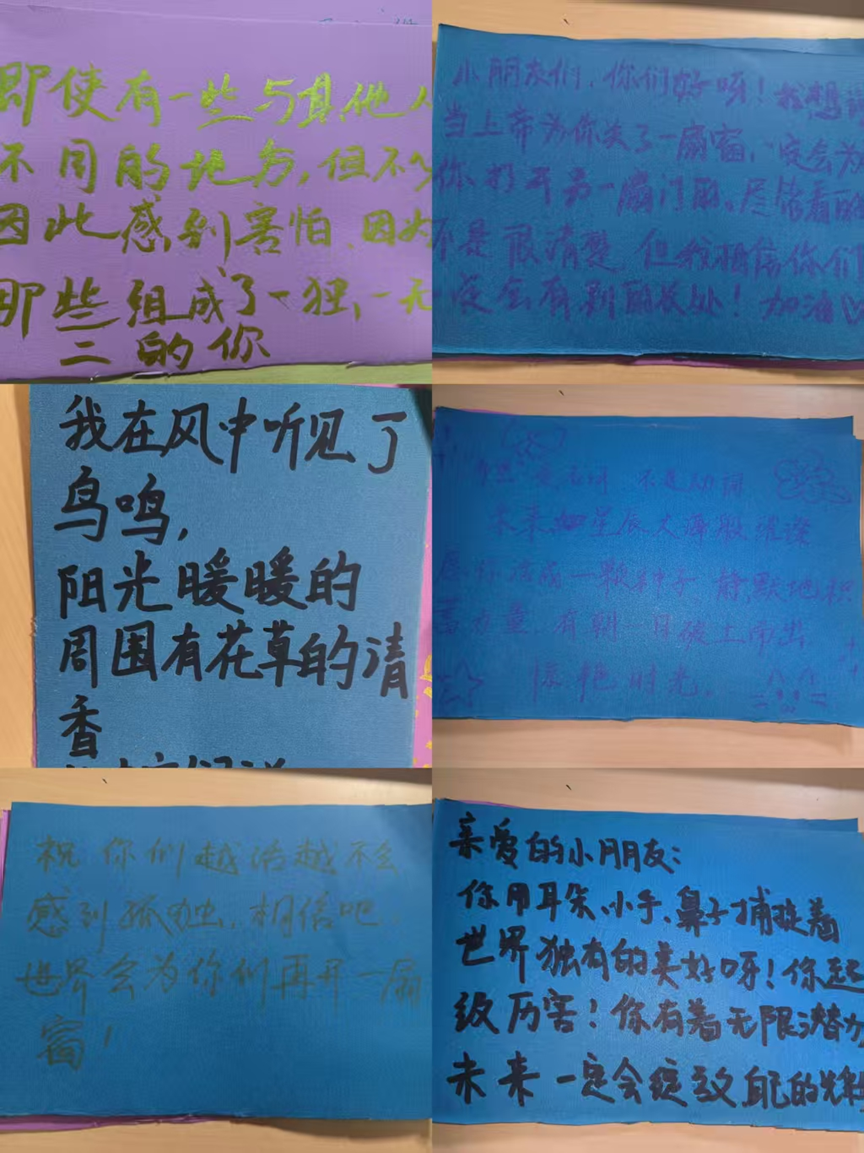 即使有一些与其他人
不同的地方,但不
因此感到害怕,因为
那些组成了一独,一无
二的你
小朋友们,你们好呀!我想
当上帝为你关了一扇窗,一定会为
你打开另一扇门的。尽管看的
不是很清楚,但我相信你们
一定会有别的长处!加油
我在风中听见了
鸟鸣,
阳光暖暖的
周围有花草的清
香
未来如星辰大海般璀璨
愿你活成一颗种子 静默地积
蓄力量,有朝一日破土而出
惊艳时光.
祝你们越活越不会
感到孤独,相信吧,
世界会为你们再开一扇
窗!
亲爱的小朋友:
你用耳朵、小手、鼻子捕捉着
世界独有的美好呀!你超
级厉害!你有着无限潜力
未来一定会绽放自己的光